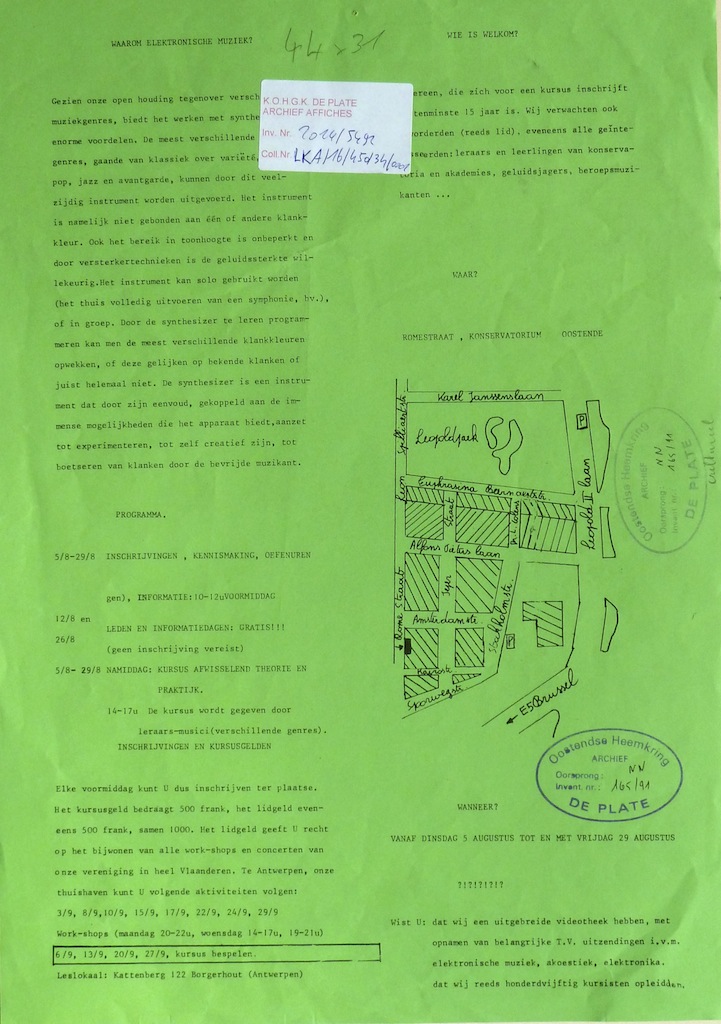 44 x 31
WAAROM ELEKTRONISCHE MUZIEK?
Gezien onze open houding tegenover versch
muziekgenres, biedt het werken met synthe
enorme voordelen. De meest verschillende
genres, gaande van klassiek over variëté,
pop, jazz en avantgarde, kunnen door dit veel-
zijdig instrument worden uitgevoerd. Het instrument
is namelijk niet gebonden aan één of andere klank-
kleur. Ook het bereik in toonhoogte is onbeperkt en
door versterkertechnieken is de geluidssterkte wil-
lekeurig.Het instrument kan solo gebruikt worden
(het thuis volledig uitvoeren van een symphonie, bv.),
of in groep. Door de synthesizer te leren program-
meren kan men de meest verschillende klankkleuren
opwekken, of deze gelijken op bekende klanken of
juist helemaal niet. De synthesizer is een instru-
ment dat door zijn eenvoud, gekoppeld aan de im-
mense mogelijkheden die het apparaat biedt,aanzet
tot experimenteren, tot zelf creatief zijn, tot
boetseren van klanken door de bevrijde muzikant.
PROGRAMMA.
5/8-29/8 INSCHRIJVINGEN , KENNISMAKING, OEFENUREN
gen), INFORMATIE:10-12uVOORMIDDAG
12/8 en
26/8
LEDEN EN INFORMATIEDAGEN: GRATIS!!!
(geen inschrijving vereist)
5/8- 29/8 NAMIDDAG: KURSUS AFWISSELEND THEORIE EN
PRAKTIJK.
14-17u De kursus wordt gegeven door
leraars-musici(verschillende genres).
INSCHRIJVINGEN EN KURSUSGELDEN
Elke voormiddag kunt U dus inschrijven ter plaatse.
Het kursusgeld bedraagt 500 frank, het lidgeld even-
eens 500 frank, samen 1000. Het lidgeld geeft U recht
op het bijwonen van alle work-shops en concerten van
onze vereniging in heel Vlaanderen. Te Antwerpen, onze
thuishaven kunt U volgende aktiviteiten volgen:
3/9, 8/9,10/9, 15/9, 17/9, 22/9, 24/9, 29/9
Work-shops (maandag 20-22u, woensdag 14-17u, 19-21u)
6/9, 13/9, 20/9, 27/9, kursus bespelen.
Leslokaal: Kattenberg 122 Borgerhout (Antwerpen)
K.O.H.G.K. DE PLATE
ARCHIEF AFFICHES
Inv. Nr. 2014/5492
Coll.Nr. LKA/16/450/34/
WIE IS WELKOM?
ereen, die zich voor een kursus inschrijft
tenminste 15 jaar is. Wij verwachten ook
vorderden (reeds lid), eveneens alle geïnte-
sseerden:leraars en leerlingen van konserva-
toria en akademies, geluidsjagers, heroepsmuzi-
kanten ...
WAAR?
ROMESTRAAT , KONSERVATORIUM OOSTENDE
Karel Janssenslaan
Leopoldpark
P
Leon Spilliaertstr.
Euphrasina Beernaertstr.
Straat
Leopold II laan
Alfons Pieters laan
Rome Straat
Amsterdamstr.
Stockholmstr.
P
Spoorwegstr.
E5Brussel
Oostendse Heemkring
ARCHIEF
Oorsprong: NN
Invent nr.: 165/91
DE PLATE
Oostendse Heemkring
ARCHIEF
Oorsprong: NN
Invent. nr.: 165/91
DE PLATE
WANNEER?
VANAF DINSDAG 5 AUGUSTUS TOT EN MET VRIJDAG 29 AUGUSTUS
?!?!?!?!?
Wist U: dat wij een uitgebreide videotheek hebben, met
opnamen van belangrijke T.V. uitzendingen i.v.m.
elektronische muziek, akoestiek, elektronika.
dat wij reeds honderdvijftig kursisten opleidden.